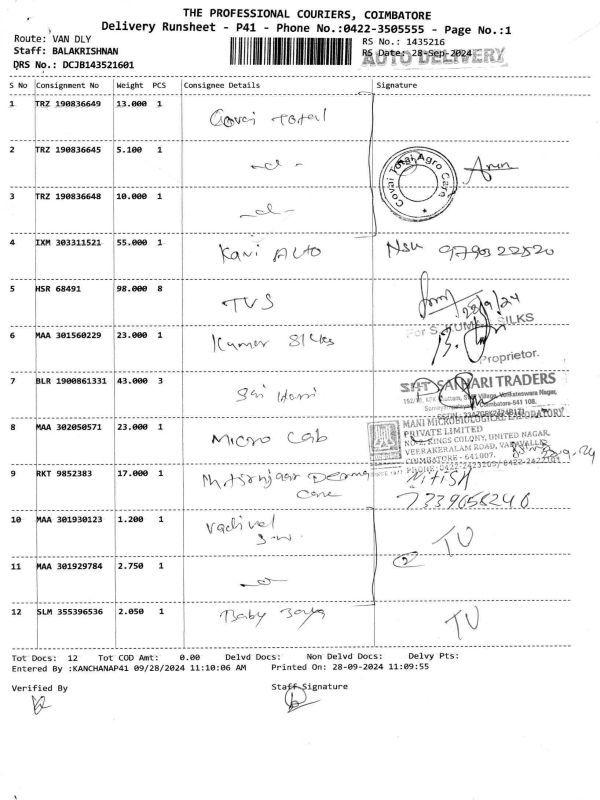 THE PROFESSIONAL COURIERS, COIMBATORE
Delivery Runsheet - P41 - Phone No.:0422-3505555 - Page No.:1
Route: VAN DLY RS No.: 1435216
Staff: BALAKRISHNAN RS Date: 28-Sep-2024
DRS No.: DCJB143521601 AUTO DELIVERY
S No Consignment No Weight PCS Consignee Details Signature
1 TRZ 190836649 13.000 1 Covai Total
2 TRZ 190836645 5.100 1
Covai Total Agro Care
3 TRZ 190836648 10.000 1
4 IXM 303311521 55.000 1 Kavi Auto
5 HSR 68491 98.000 8 TVS 28/9/24
For S. KUMAR SILKS
6 MAA 301560229 23.000 1 Kumar Silks
Proprietor.
7 BLR 1900861331 43.000 3 Sri Hari
TRADERS
Coimbatore-641 108.
8 MAA 302050571 23.000 1 Micro Lab
MANI MICROBIOLOGICAL LABORATORY
PRIVATE LIMITED
KINGS COLONY, UNITED NAGAR,
VEERAKERALAM ROAD, VADAVALLI,
COIMBATORE - 641007.
9 RKT 9852383 17.000 1 Derma Care Nitish
10 MAA 301930123 1.200 1 Vadivel TV
11 MAA 301929784 2.750 1 2
12 SLM 355396536 2.050 1 Baby TV
Tot Docs: 12 Tot COD Amt: 0.00 Delvd Docs: Non Delvd Docs: Delvy Pts:
Entered By :KANCHANAP41 09/28/2024 11:10:06 AM Printed On: 28-09-2024 11:09:55
Verified By Staff Signature